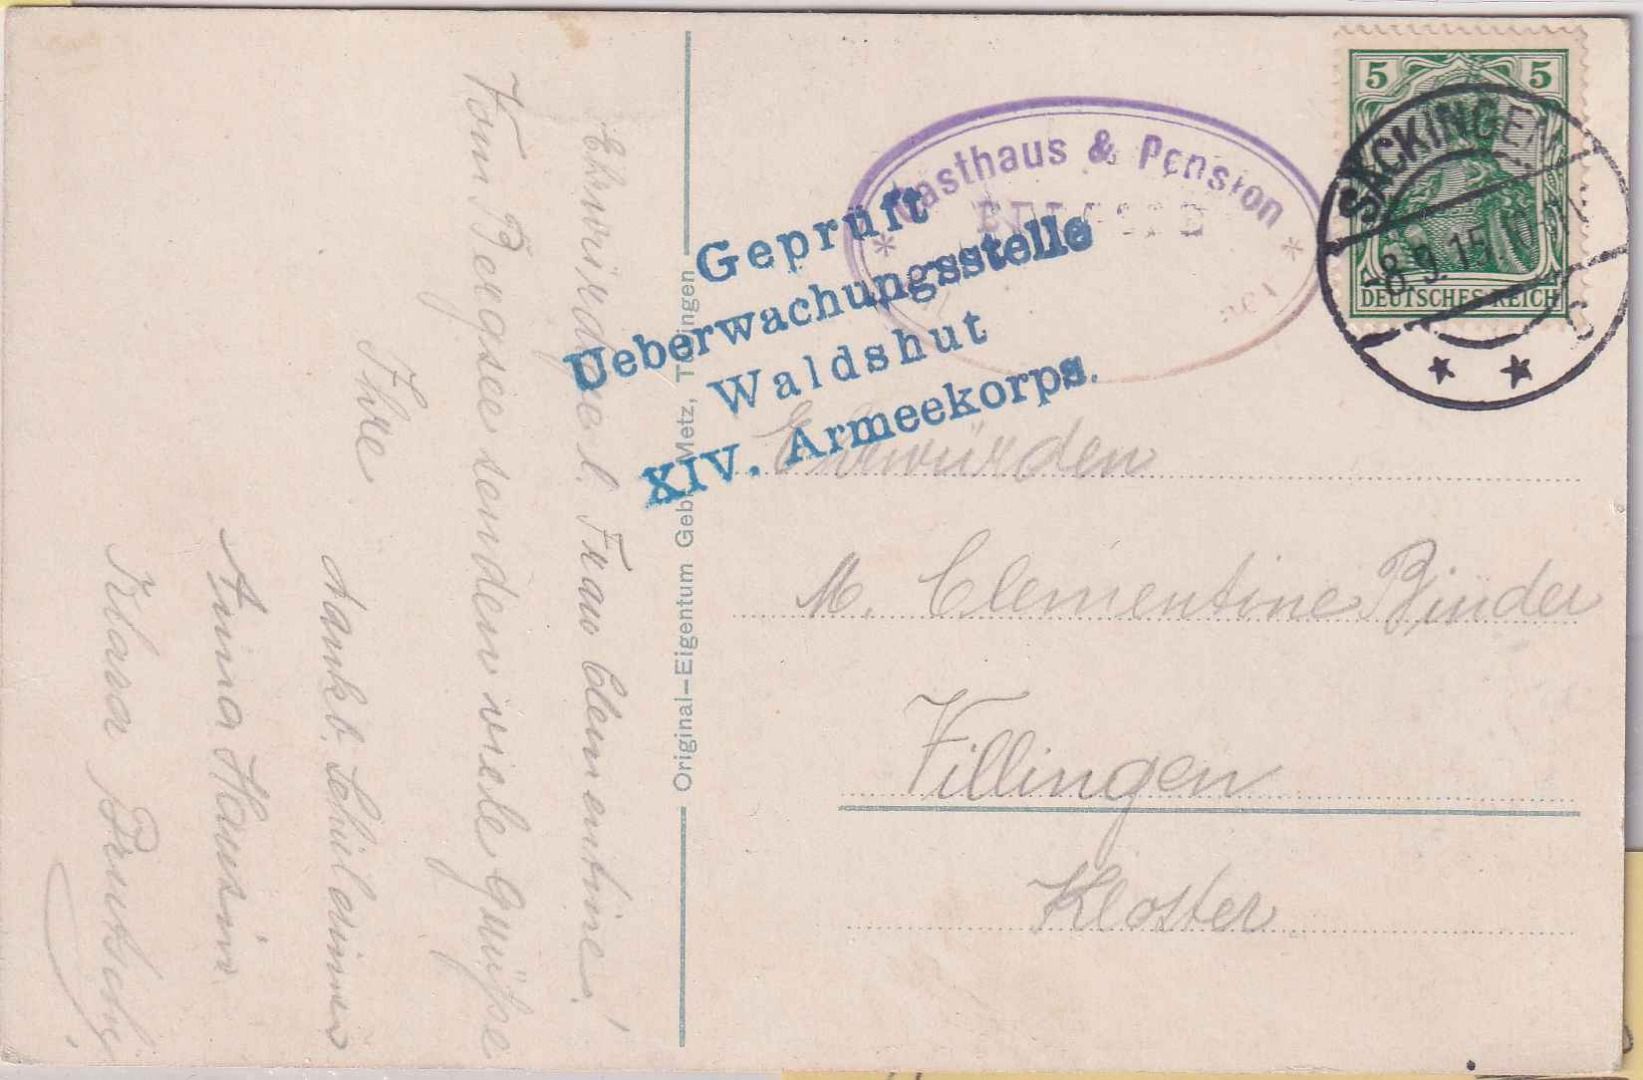 Ehrwürdige l. Frau Clementine!
Vom Bergsee senden viele Grüße
Ihre
dankb. Schülerinnen
Anna Hausin
Klara Brutschi
Original-Eigentum Gebr. Metz,
Geprüft
Ueberwachungsstelle
Waldshut
XIV. Armeekorps.
Gasthaus & Pension
5 5
DEUTSCHES REICH
SÄCKINGEN
8.9.15.
Ehrwürden
M. Clementine Binder
Villingen
Kloster